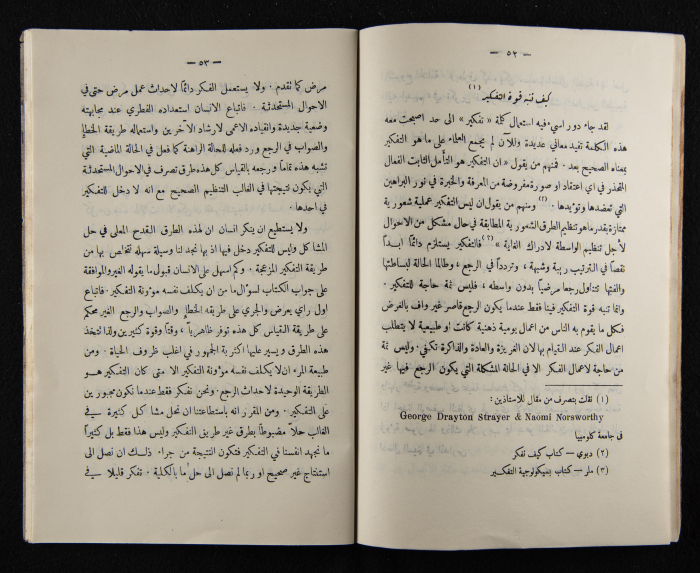 — ٥٢ —
كيف ننبه قوة التفكير (١)
لقد جاء دور اسيء فيه استعمال كلمة « تفكير » الى حد اصبحت معه
هذه الكلمة تفيد معاني عديدة وللآن لم يجمع العلماء على ما هو التفكير
بمعناه الصحيح بعد . فمنهم من يقول « ان التفكير هو التأمل الثابت الفعال
التحذر في اي اعتقاد او صورة مفروضة من المعرفة والخبرة في نور البراهين
التي تعضدها وتؤيدها . (٢) ومنهم من يقول ان ليس التفكير عملية شعورية
ممتازة بقدر ما هو تنظيم الطرق الشعورية المطابقة في حال مشكل من الاحوال
لأجل تنظيم الواسطة لادراك الغاية » (٣) فالتفكير يستلزم دائماً ابداً
نقصاً في الترتيب ريبة وشبهة ، وتردداً في الرجع ، وطالما الحالة لبساطتها
والفتها تتناول رجعا مرضياً بدون واسطه ، فليس ثمة حاجة للتفكير .
وانما تنبه قوة التفكير فينا فقط عندما يكون الرجع قاصر غير واف بالغرض
فكل ما يقوم به الناس من اعمال يومية ذهنية كانت او طبيعية لا يتطلب
اعمال الفكر عند القيام بها لان الغريزة والعادة والذاكرة تكفي . وليس ثمة
من حاجة لاعمال الفكر الا في الحالة المشكلة التي يكون الرجع فيها غير
(١) نقلت بتصرف من مقال للاستاذين :
George Drayton Strayer & Naomi Norsworthy
في جامعة كلومبيا
(٢) ديوي — كتاب كيف نفكر
(٣) ملر — كتاب بسيكولوجية التفكير
— ٥٣ —
مرض كما تقدم . ولا يستعمل الفكر دائماً لاحداث عمل مرض حتى في
الاحوال المستحدثة . فاتباع الانسان استعداده الفطري عند مجابهته
وضعية جديدة وانقياده الاعمى لارشاد الآخرين واستعماله طريقة الخطإ
والصواب في الرجع ورد فعله للحالة الراهنة كما فعل في الحالة الماضية التي
تشبه هذه تماماً ورجعه بالقياس كل هذه طرق تصرف في الاحوال المستحدثة
التي يكون نتيجتها في الغالب التنظيم الصحيح مع انه لا دخل للتفكير
في احدها .
ولا يستطيع ان ينكر انسان ان لهذه الطرق القدح المعلى في حل
المشاكل وليس للتفكير دخل فيها اذ بها نجد لنا وسيلة سهله نتخلص بها من
طريقة التفكير المزعجة . وكم اسهل على الانسان قبول ما يقوله الغير والموافقة
على جواب الكتاب لسؤال ما من ان يكلف نفسه مؤونة التفكير . فاتباع
اول راي يعرض والجري على طريقه الخطإ والصواب والرجع الغير محكم
على طريقة القياس كل هذه توفر ظاهرياً ، وقتاً وقوة كثيرين ولذا تتخذ
هذه الطرق ويسير عليها اكثرية الجمهور في اغلب ظروف الحياة . ومن
طبيعة المرء ان لا يكلف نفسه مؤونة التفكير الا متى كان التفكير هو
الطريقة الوحيدة لاحداث الرجع . ونحن نفكر فقط عندما نكون مجبورين
على التفكير . ومن المقرر انه باستطاعتنا ان نحل مشاكل كثيرة في
الغالب حلاً مضبوطاً بطرق غير طريق التفكير وليس هذا فقط بل كثيراً
ما نجهد انفسنا في التفكير فتكون النتيجة من جراء ذلك ان نصل الى
استنتاج غير صحيح او ربما لم نصل الى حل ما بالكلية . تفكر قليلا في